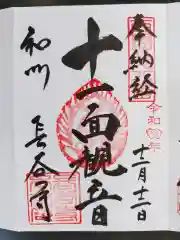 奉納経
令和四年
十二月十二日
十一面観音
和州
長谷寺